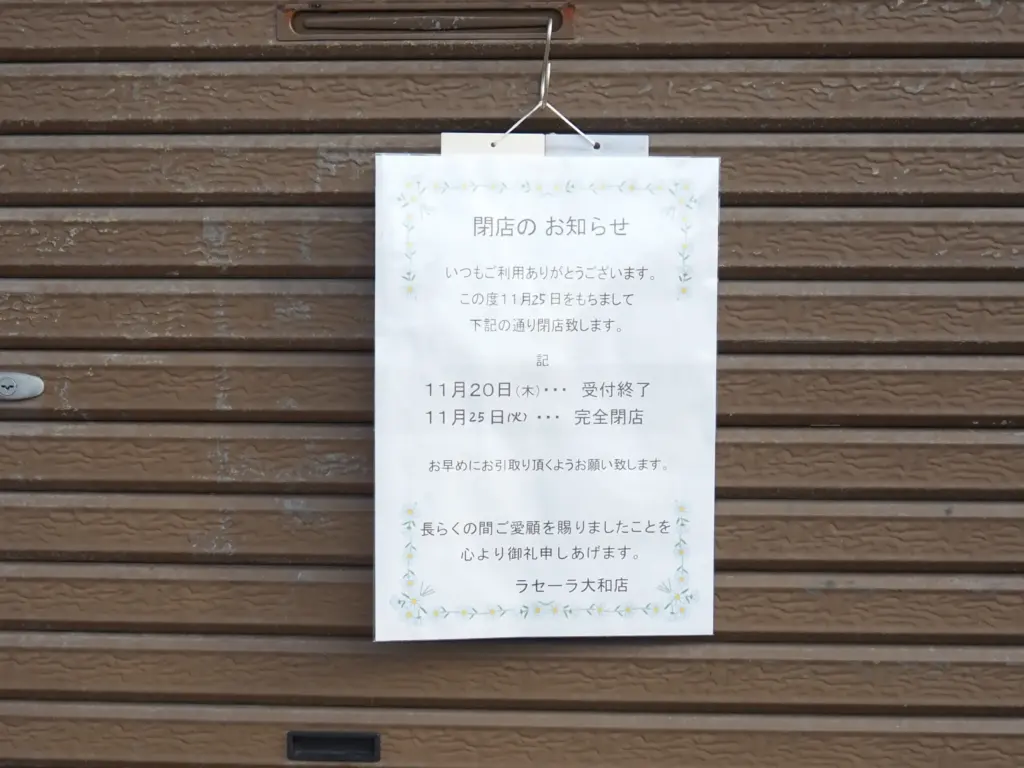 閉店の お知らせ
いつもご利用ありがとうございます。
この度11月25日をもちまして
下記の通り閉店致します。
記
11月20日(木)・・・ 受付終了
11月25日(火)・・・ 完全閉店
お早めにお引取り頂くようお願い致します。
長らくの間ご愛顧を賜りましたことを
心より御礼申しあげます。
ラセーラ大和店